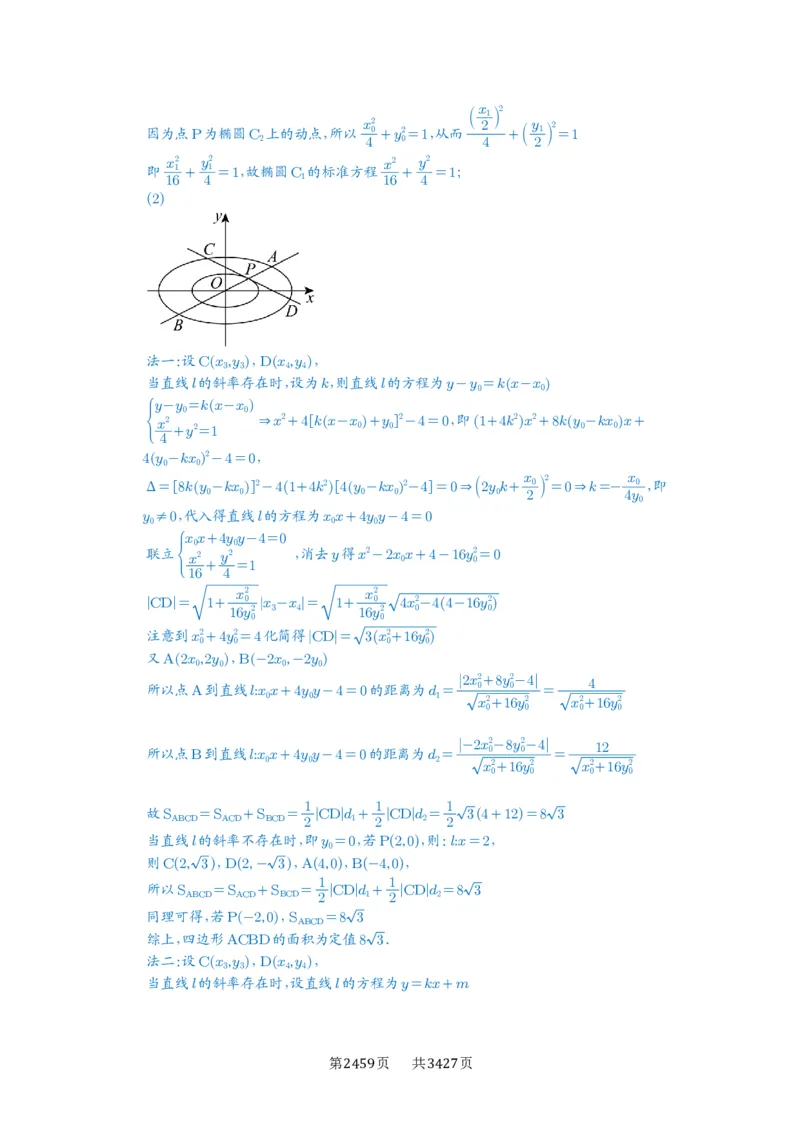 因为点P为椭圆C₂上的动点,所以 x₀²/4+y₀²=1,从而 (x₁/2)²/4+(y₁/2)²=1
即 x₁²/16+y₁²/4=1,故椭圆C₁的标准方程 x²/16+y²/4=1;
(2)
y
C
A
P
O
x
D
B
法一:设C(x₃,y₃),D(x₄,y₄),
当直线l的斜率存在时,设为k,则直线l的方程为y-y₀=k(x-x₀)
{y-y₀=k(x-x₀) x²/4+y²=1 ⇒x²+4[k(x-x₀)+y₀]²-4=0,即(1+4k²)x²+8k(y₀-kx₀)x+
4(y₀-kx₀)²-4=0,
Δ=[8k(y₀-kx₀)]²-4(1+4k²)[4(y₀-kx₀)²-4]=0⇒(2y₀k+x₀/2)²=0⇒k=-x₀/4y₀,即
y₀≠0,代入得直线l的方程为x₀x+4y₀y-4=0
联立{x₀x+4y₀y-4=0 x²/16+y²/4=1 ,消去y得x²-2x₀x+4-16y₀²=0
|CD|=√(1+x₀²/16y₀²)|x₃-x₄|=√(1+x₀²/16y₀²)√(4x₀²-4(4-16y₀²))
注意到x₀²+4y₀²=4化简得|CD|=√(3(x₀²+16y₀²))
又A(2x₀,2y₀),B(-2x₀,-2y₀)
所以点A到直线l:x₀x+4y₀y-4=0的距离为d₁=|2x₀²+8y₀²-4|/√(x₀²+16y₀²)=4/√(x₀²+16y₀²)
所以点B到直线l:x₀x+4y₀y-4=0的距离为d₂=|-2x₀²-8y₀²-4|/√(x₀²+16y₀²)=12/√(x₀²+16y₀²)
故S_ABCD=S_ACD+S_BCD=1/2|CD|d₁+1/2|CD|d₂=1/2√3(4+12)=8√3
当直线l的斜率不存在时,即y₀=0,若P(2,0),则:l:x=2,
则C(2,√3),D(2,-√3),A(4,0),B(-4,0),
所以S_ABCD=S_ACD+S_BCD=1/2|CD|d₁+1/2|CD|d₂=8√3
同理可得,若P(-2,0),S_ABCD=8√3
综上,四边形ACBD的面积为定值8√3.
法二:设C(x₃,y₃),D(x₄,y₄),
当直线l的斜率存在时,设直线l的方程为y=kx+m
第2459页 共3427页